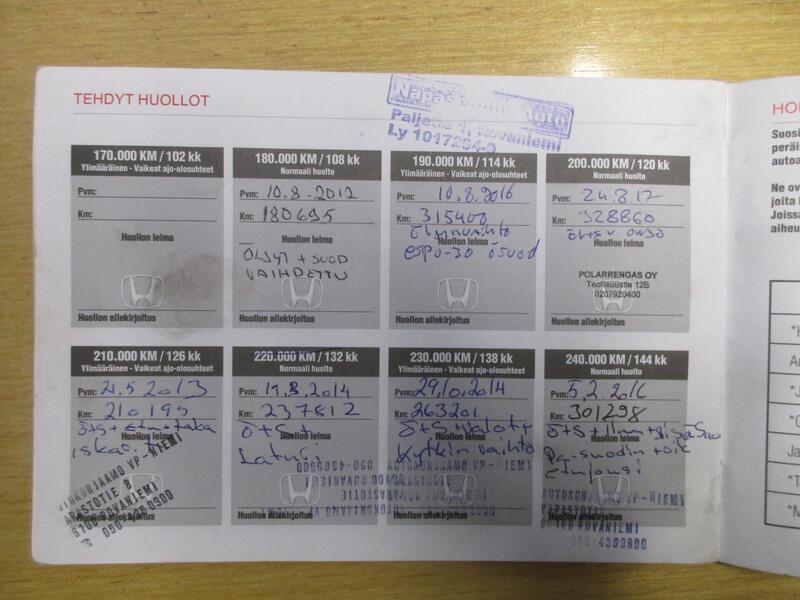 TEHDYT HUOLLOT
Paljetie 4, Rovaniemi
Ly 1017294-0
170.000 KM / 102 kk
Ylimääräinen - Vaikeat ajo-olosuhteet
Pvm:
Km:
Huollon leima
Huollon allekirjoitus
180.000 KM / 108 kk
Normaali huolto
Pvm: 10.8-2012
Km: 180695
Huollon leima
ÖLJYT + SUOD
VAIHDETTU
Huollon allekirjoitus
190.000 KM / 114 kk
Ylimääräinen - Vaikeat ajo-olosuhteet
Pvm: 10.8.2016
Km: 315400
Öljynvaihto
Huollon leima
5W-30 ösuod
Huollon allekirjoitus
200.000 KM / 120 kk
Normaali huolto
Pvm: 24.8.17
Km: 328860
Huollon leima
POLARRENGAS OY
Teollisuustie 12B
0207920400
Huollon allekirjoitus
210.000 KM / 126 kk
Ylimääräinen - Vaikeat ajo-olosuhteet
Pvm: 21.5.2013
Km: 210195
Ö+S+Etu+taka
Huollon leima
iskar.
AUTOKORJAAMO VP-NIEMI
VARASTOTIE 8
ROVANIEMI
Huollon allekirjoitus
220.000 KM / 132 kk
Normaali huolto
Pvm: 19.3.2014
Km: 237812
Ö+S+
Huollon leima
Laturi
Huollon allekirjoitus
230.000 KM / 138 kk
Ylimääräinen - Vaikeat ajo-olosuhteet
Pvm: 29.10.2014
Km: 263201
Ö+S+Valot+
Huollon leima
Kytkin vaihto
AUTOKORJAAMO VP-NIEMI
Huollon allekirjoitus
240.000 KM / 144 kk
Normaali huolto
Pvm: 5.2.2016
Km: 301298
Ö+S+Ilma+SisäSuo
Huollon leima
Pa-suodin
AUTOKORJAAMO VP-NIEMI
VARASTOTIE
ROVANIEMI
Huollon allekirjoitus
Suosi
peräis
autoa
Ne ov
joita l
Joissa
aiheu